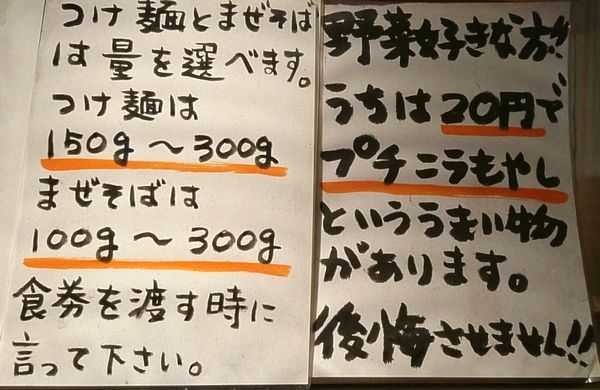 つけ麺とまぜそば
は量を選べます。
つけ麺は
150g〜300g
まぜそばは
100g〜300g
食券を渡す時に
言って下さい。
野菜好きな方!!
うちは20円で
プチニラもやし
といううまい物
があります。
後悔させません!!